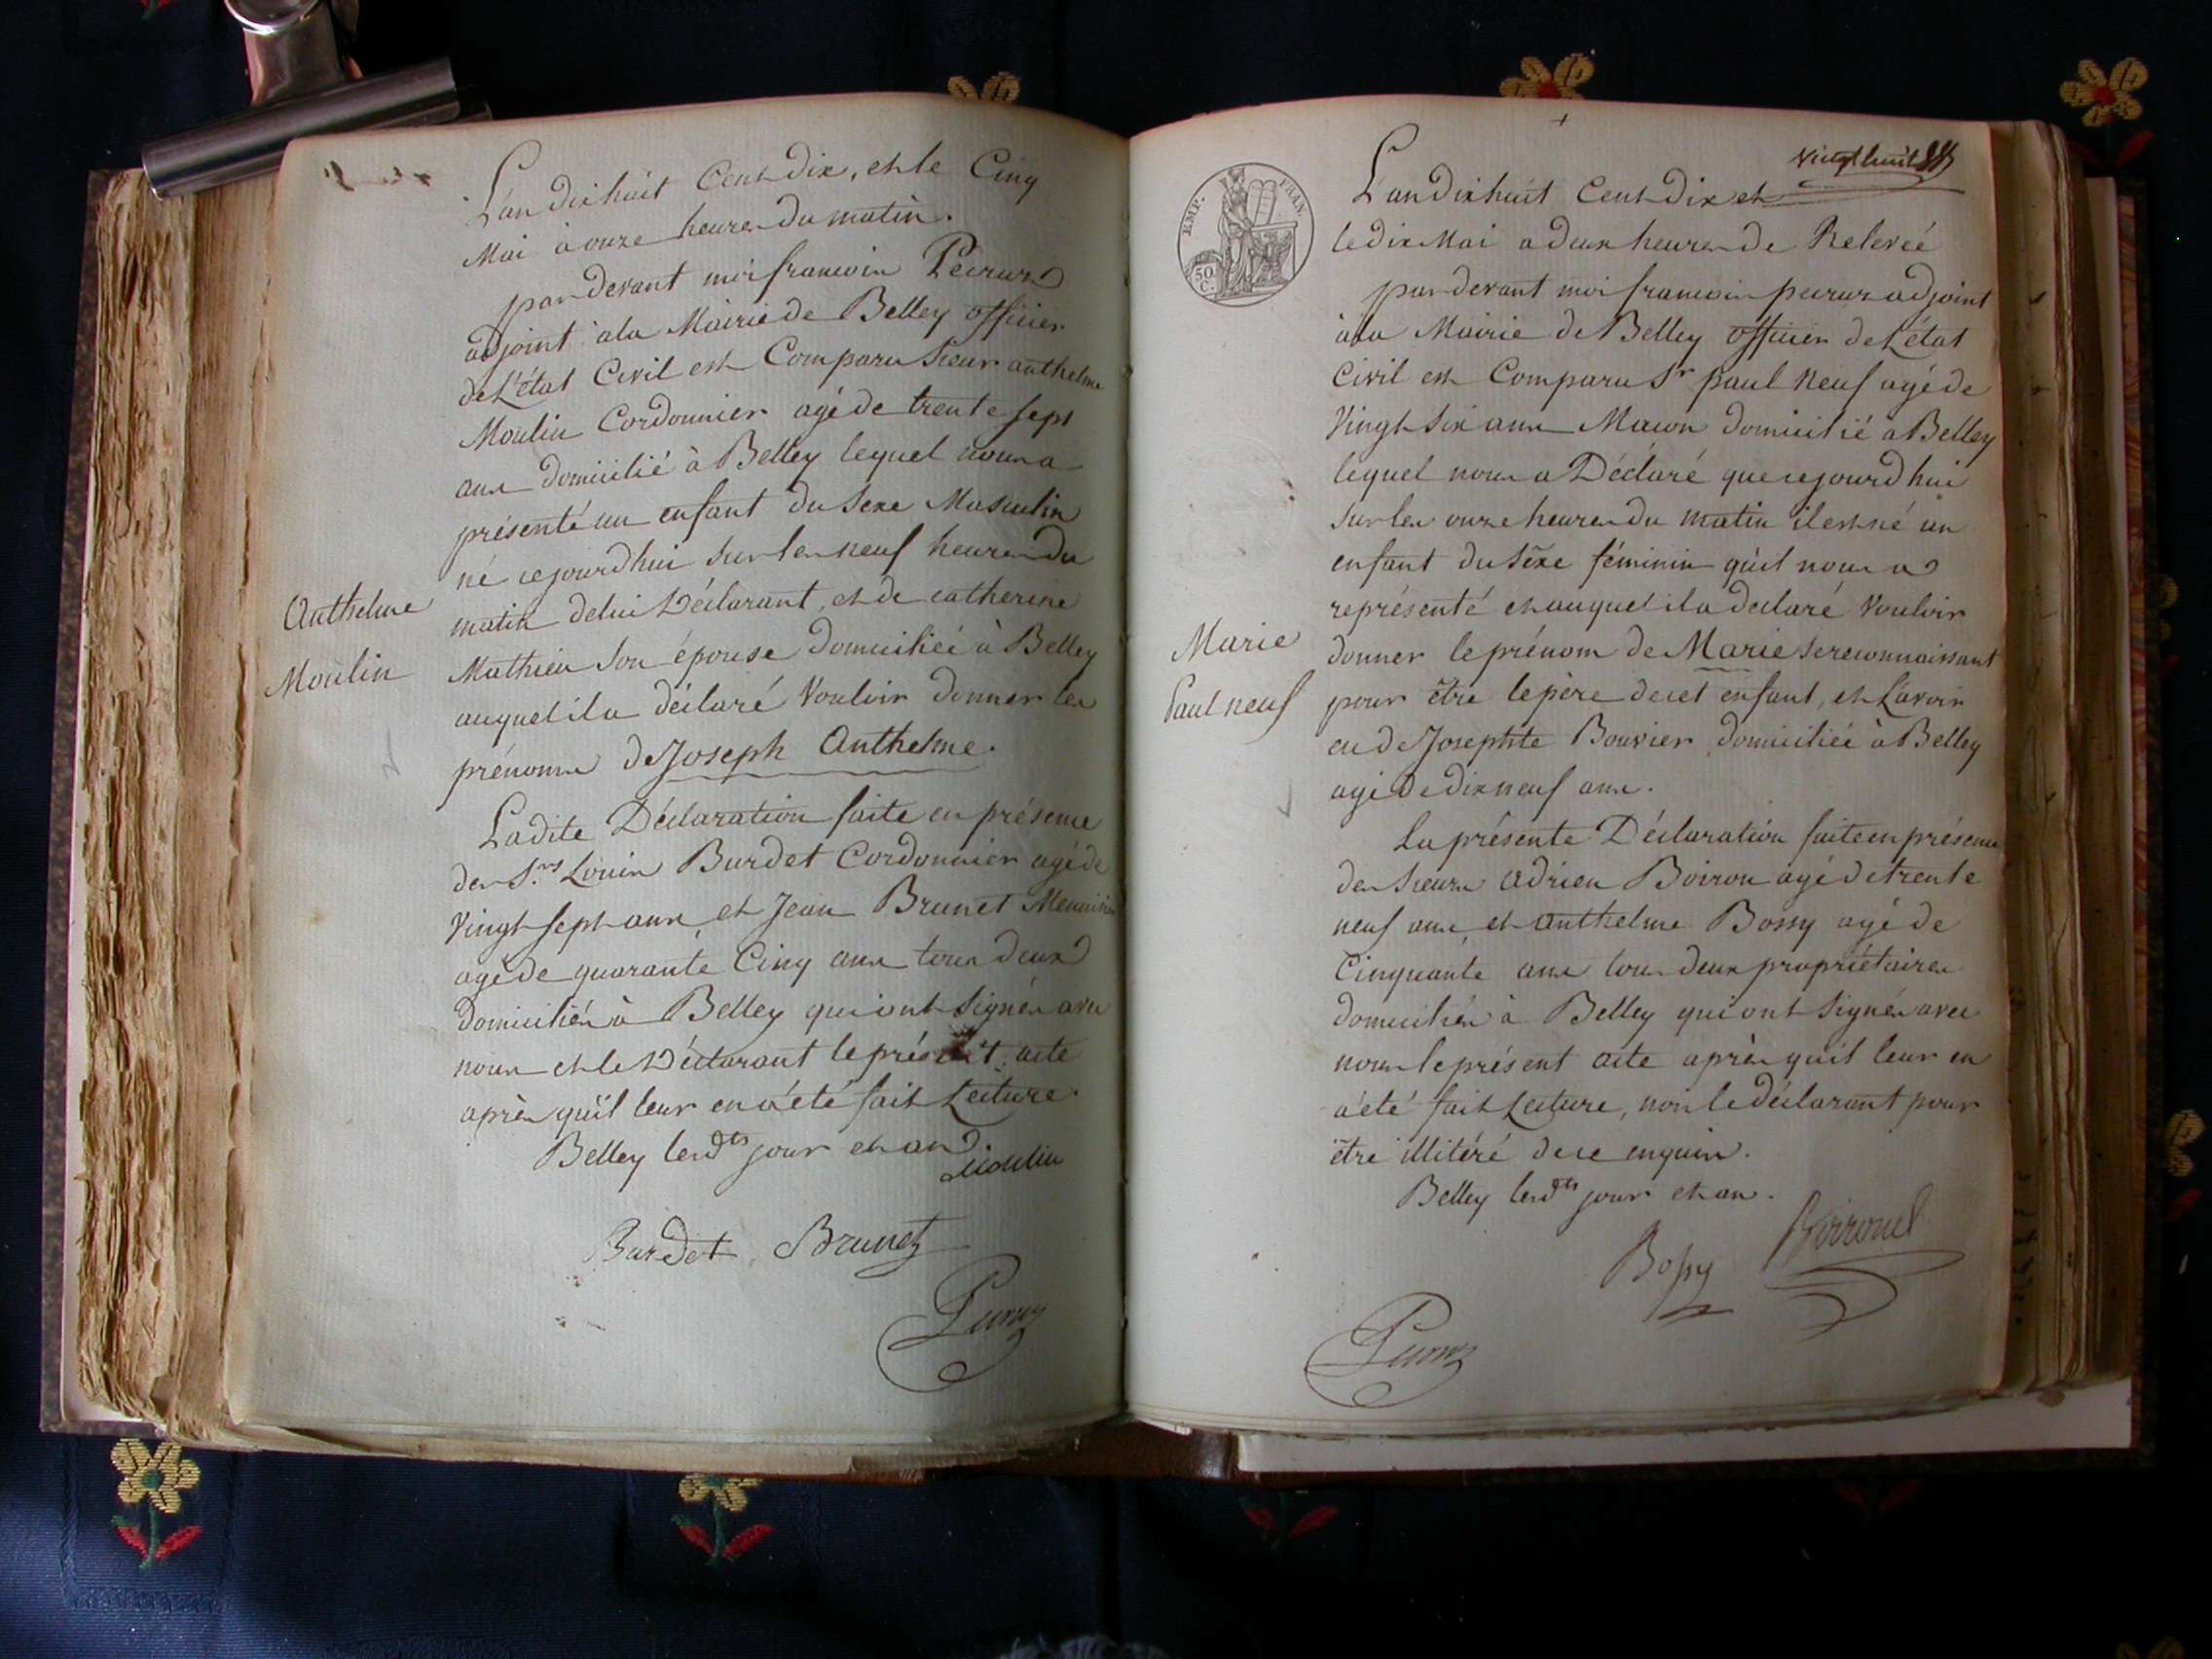 L'an dix huit Cent dix, et le Cinq
Mai à onze heures du matin.
par devant moi francois Peirur
adjoint a la Mairie de Belley officier
de L'état Civil est Comparu Sieur anthelme
Moulin Cordonnier agé de trente sept
ans domicilié à Belley lequel nous a
présenté un enfant du Sexe Masculin
né cejourd'hui sur les neuf heures du
matin de lui Déclarant, et de catherine
Mathieu son épouse domiciliée à Belley
auquel il a déclaré Vouloir donner les
prénoms de Joseph Anthelme.
Ladite Déclaration faite en présence
des S.rs Louis Burdet Cordonnier agé de
Vingt sept ans et Jean Brunet Menuisier
agé de quarante Cinq ans tous deux
domiciliés à Belley qui ont signés avec
nous et le Déclarant le présent acte
après qu'il leur en a été fait Lecture.
Belley les dts jour et an.
Moulin
Burdet Brunet
Anthelme
Moulin
Vingt huit
EMP. FRAN.
50 C.
L'an dix huit Cent dix et
le dix Mai a deux heures de Relevée
par devant moi francois peirur adjoint
à la Mairie de Belley officier de L'état
Civil est Comparu Sr paul Neuf agé de
Vingt six ans Macon domicilié à Belley
lequel nous a Déclaré que cejourd'hui
sur les onze heures du matin il est né un
enfant du Sexe féminin qu'il nous a
représenté et auquel il a déclaré Vouloir
donner le prénom de Marie se reconnaissant
pour être le père de cet enfant, et L'avoir
eu de Josephte Bouvier domiciliée à Belley
agé de dix neuf ans.
La présente Déclaration faite en présence
des sieurs Adrien Boiron agé de trente
neuf ans, et Anthelme Bossy agé de
Cinquante ans tous deux propriétaires
domiciliés à Belley qui ont signés avec
nous le présent acte après qu'il leur en
a été fait Lecture, non le déclarant pour
être illitéré de ce enquis.
Belley les dts jour et an.
Bossy
Marie
Paul neuf